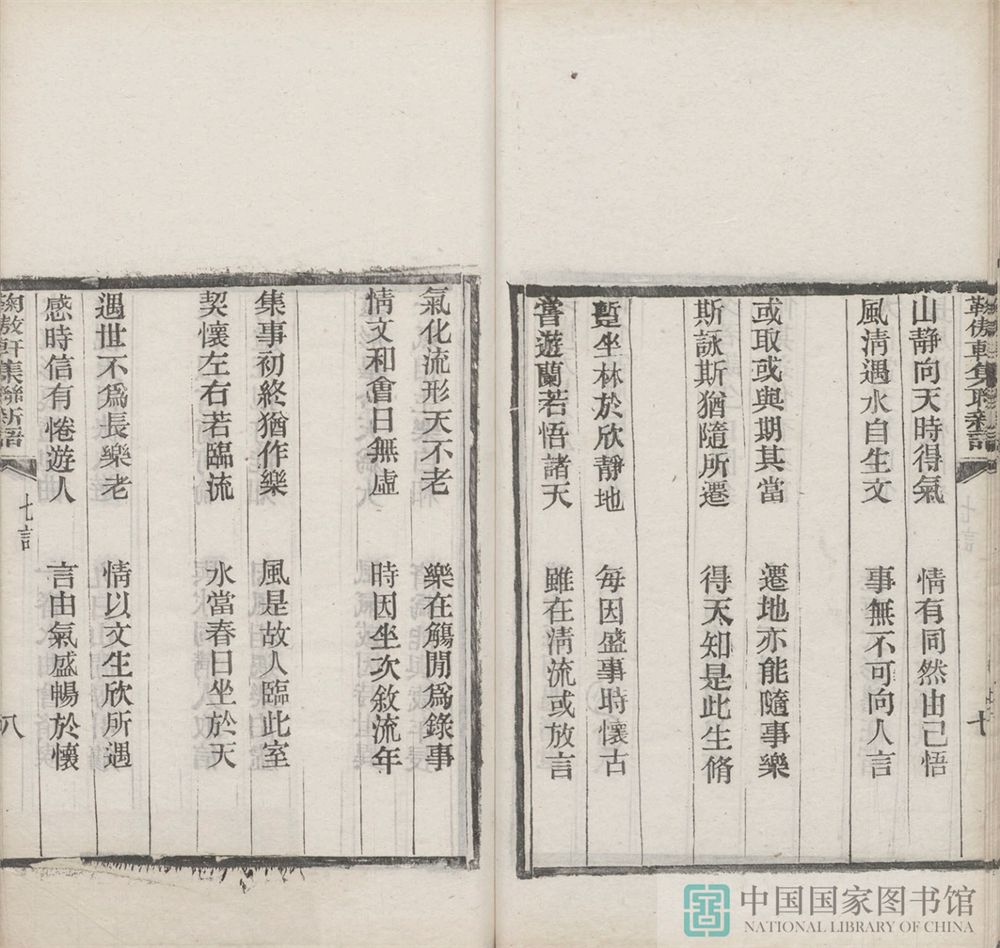 山靜向天時得氣　情有同然由己悟
風清遇水自生文　事無不可向人言
或取或與期其當　遷地亦能隨事樂
斯詠斯猶隨所遷　得天知是此生脩
蹔坐林於欣靜地　每因盛事時懷古
嘗遊蘭若悟諸天　雖在清流或放言
氣化流形天不老　樂在觴閒爲錄事
情文和會日無虛　時因坐次敘流年
集事初終猶作樂　風是故人臨此室
契懷左右若臨流　水當春日坐於天
遇世不爲長樂老　情以文生欣所遇
感時信有惓遊人　言由氣盛暢於懷
軒集聯新語
七言
八
中国国家图书馆
NATIONAL LIBRARY OF CHINA